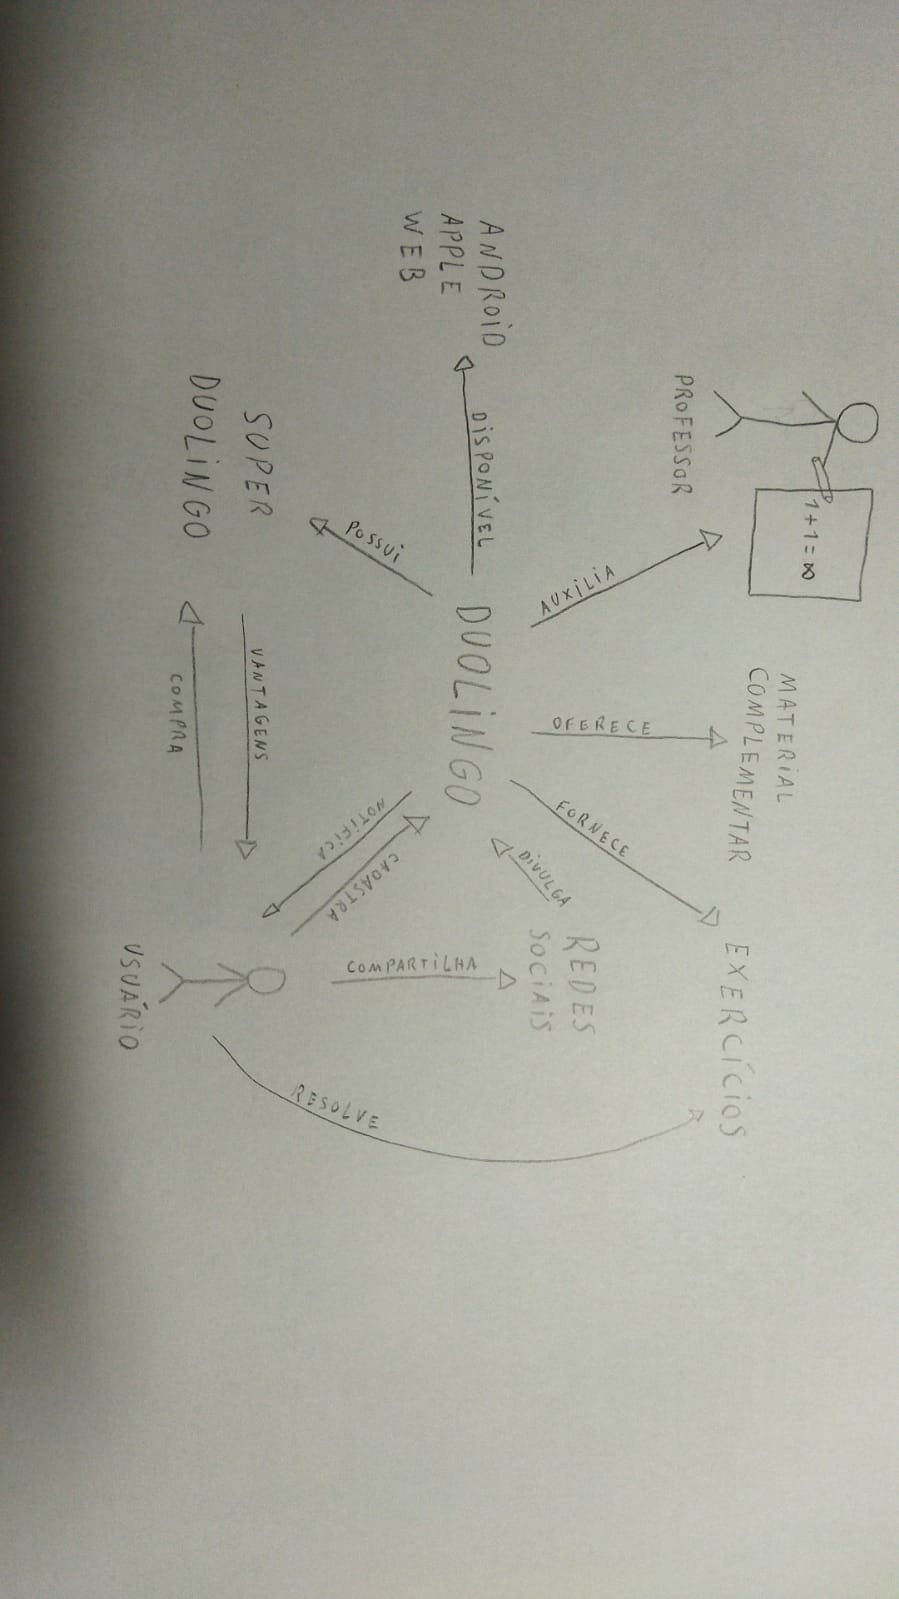 1+1=∞
PROFESSOR
MATERIAL
COMPLEMENTAR
EXERCÍCIOS
AUXILIA
OFERECE
FORNECE
DIVULGA
REDES
SOCIAIS
ANDROID
APPLE
WEB
DISPONÍVEL
DUOLINGO
POSSUI
NOTIFICA
CADASTRA
COMPARTILHA
RESOLVE
SUPER
DUOLINGO
VANTAGENS
COMPRA
USUÁRIO